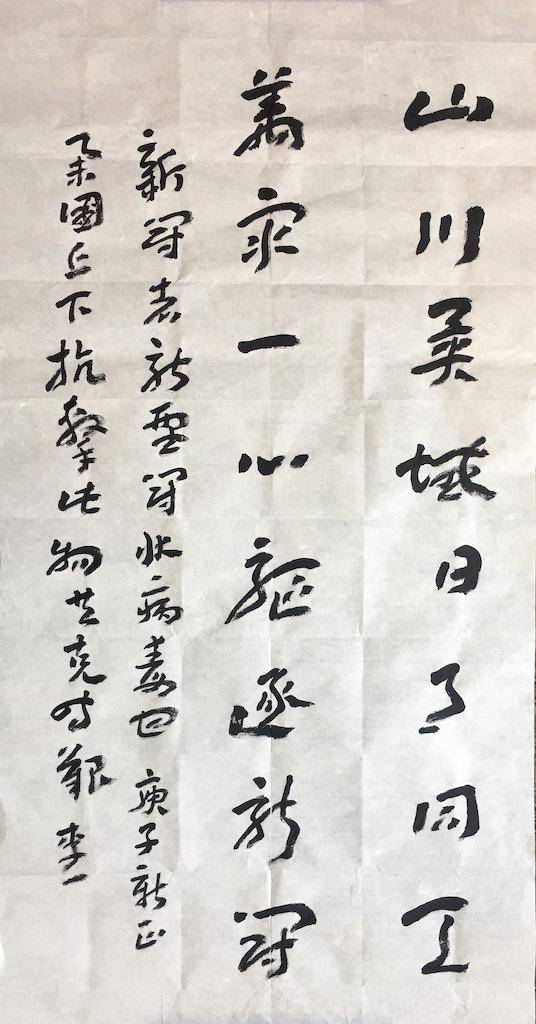 山川異域日月同天
萬眾一心驅逐新冠
新冠者新型冠狀病毒也 庚子新正
舉國上下抗擊此物共克时艱 李一